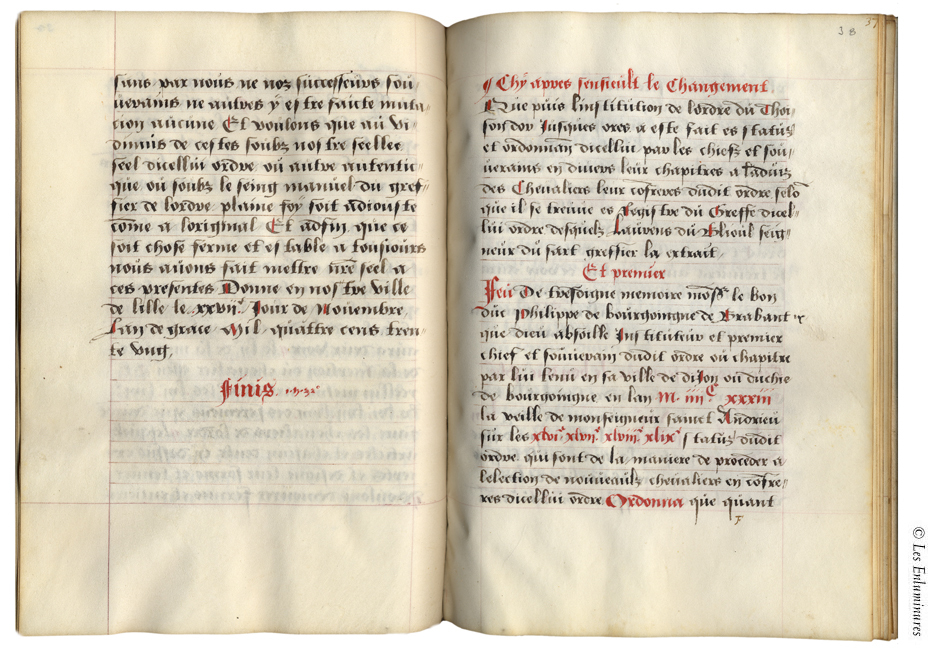 sans par nous ne noz successeurs sou„
uerains ne autres y estre faicte muta„
cion aucune Et voulons que au vi„
dimus de cestes soubz nostre seelles
seel dicellui ordre ou autre autentic„
que ou soubz le seing manuel du gref„
fier de lordre plaine foy soit adiouste
come a loriginal Et adfin que ce
soit chose ferme et estable a tousiours
nous auons fait mettre nre seel a
ces presentes Donne en nostre ville
de lille le xxvii Jour de Nouembre
Lan de grace Mil quattre cens tren„
te vng
finis
38
57
¶ Chy apres sensieult le Changement
Que puis linstitution de lordre du Thoi„
son dor Jusques ores a este fait es statuz
et ordonnan dicellui par les chiefz et sou„
uerains en diuers leur chapitres a laduiz
des Cheualiers leur cofreres dudit ordre selo
que il se treuue es Registre du Greffe dicel„
lui ordre desquelz Laurens du Blioul seig„
neur du sart greffier la extrait
Et premier
Feu De tresdigne memoire mons le bon
duc Philippe de bourgoingne de Brabant
que dieu absoille Instituteur et premier
chief et souuerain dudit ordre ou chapitre
par lui tenu en sa ville de diJon ou duchie
de bourgoingne en lan M iiii C xxxiii
la veille de monseigneur sainct Andrieu
sur les xlvi xlvii xlviii xlix statuz dudit
ordre qui sont de la maniere de proceder a
lelection de nouueaulz cheualiers en cofre„
res dicellui ordre Ordonna que quant
© Les Enluminures